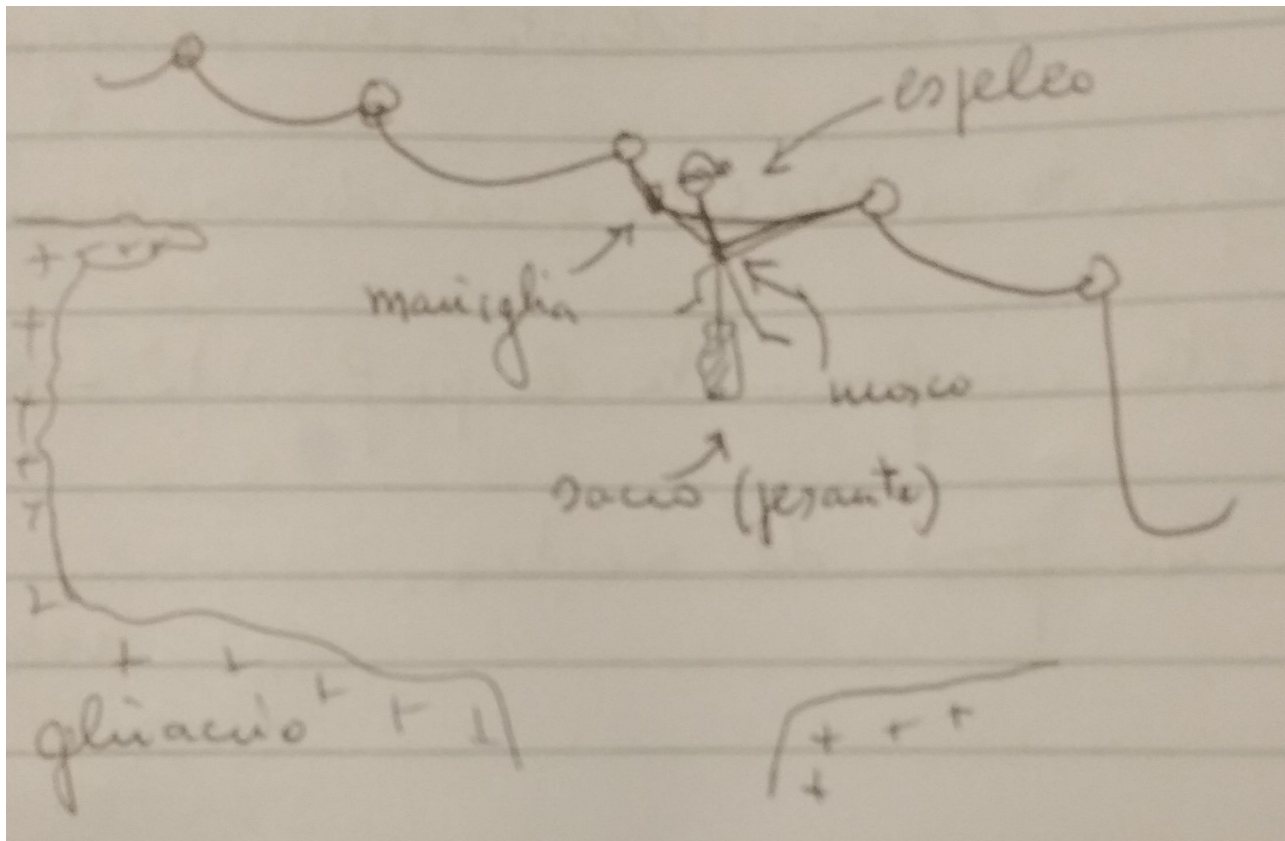 espeleo
maniglia
mosco
sacco (pesante)
ghiaccio